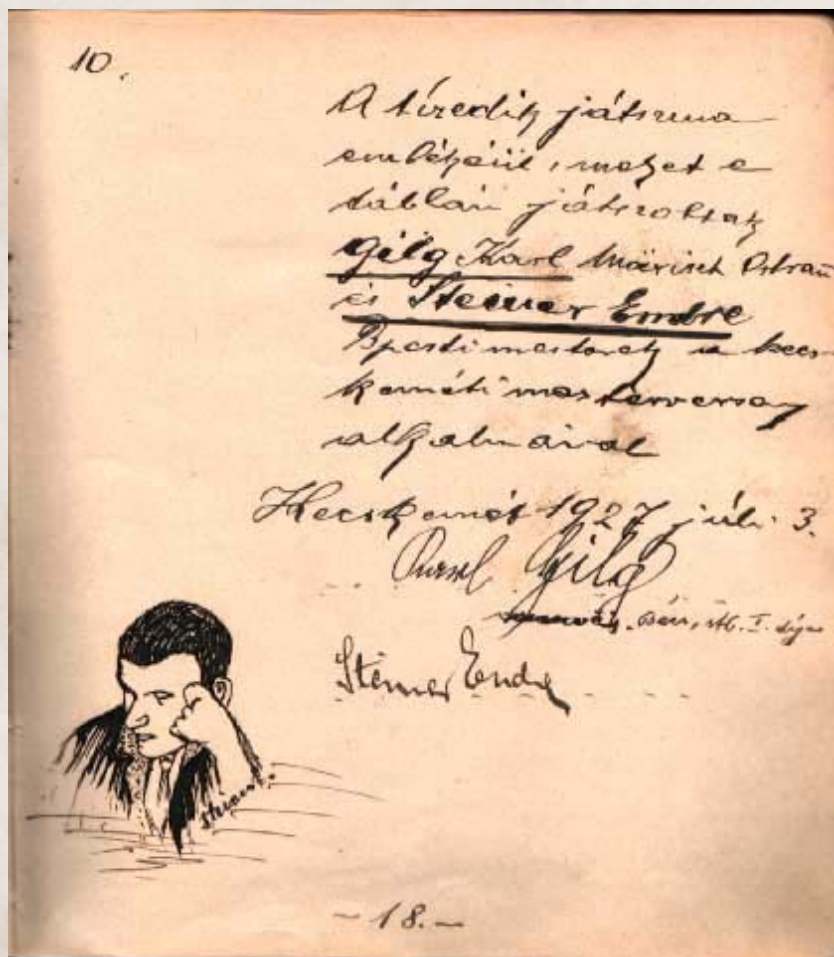 10.
A tizedik játszma
emlékéül, melyet e
táblán játszottak
Gilg Karl Märisch Ostrau
és Steiner Endre
Bpesti mesterek a kecs-
keméti mesterverseny
alkalmával
Kecskemét 1927 júli. 3.
Karl Gilg
I.
Steiner Endre
Steiner.
- 18. -